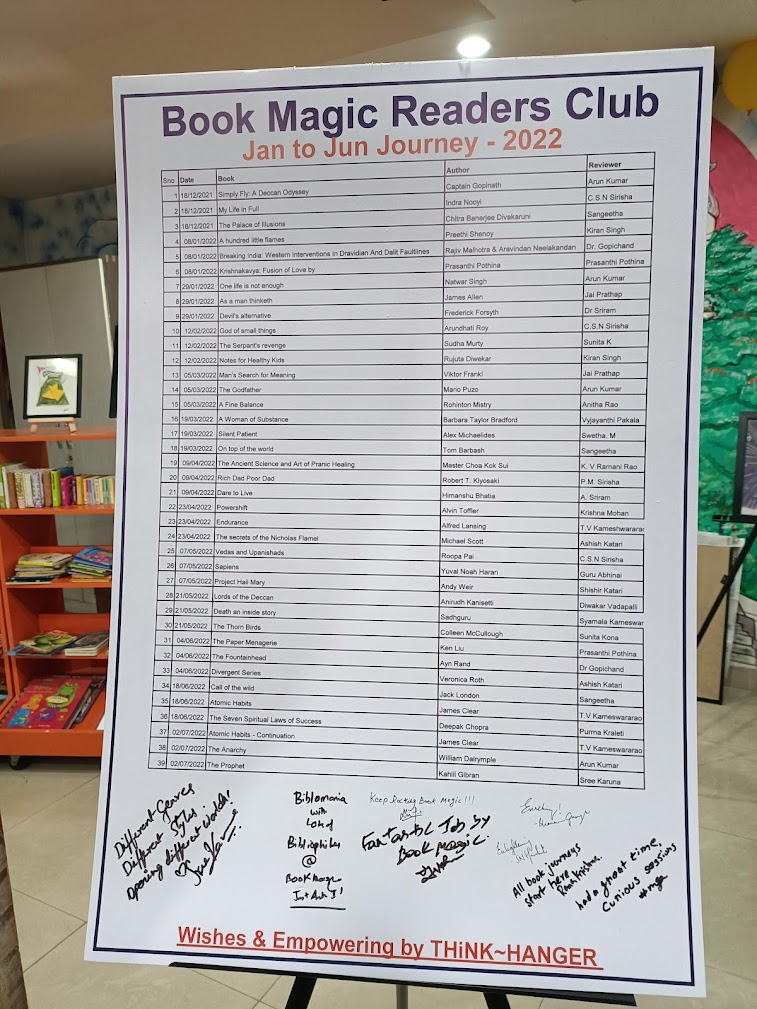 Book Magic Readers Club
Jan to Jun Journey - 2022
Sno Date Book Author Reviewer
1 18/12/2021 Simply Fly: A Deccan Odyssey Captain Gopinath Arun Kumar
2 18/12/2021 My Life in Full Indra Nooyi C.S.N Sirisha
3 18/12/2021 The Palace of Illusions Chitra Banerjee Divakaruni Sangeetha
4 08/01/2022 A hundred little flames Preethi Shenoy Kiran Singh
5 08/01/2022 Breaking India: Western Interventions In Dravidian And Dalit Faultlines Rajiv Malhotra & Aravindan Neelakandan Dr. Gopichand
6 08/01/2022 Krishnakavya: Fusion of Love by Prasanthi Pothina Prasanthi Pothina
7 29/01/2022 One life is not enough Natwar Singh Arun Kumar
8 29/01/2022 As a man thinketh James Allen Jai Prathap
9 29/01/2022 Devil's alternative Frederick Forsyth Dr Sriram
10 12/02/2022 God of small things Arundhati Roy C.S.N Sirisha
11 12/02/2022 The Serpant's revenge Sudha Murty Sunita K
12 12/02/2022 Notes for Healthy Kids Rujuta Diwekar Kiran Singh
13 05/03/2022 Man's Search for Meaning Viktor Frankl Jai Prathap
14 05/03/2022 The Godfather Mario Puzo Arun Kumar
15 05/03/2022 A Fine Balance Rohinton Mistry Anitha Rao
16 19/03/2022 A Woman of Substance Barbara Taylor Bradford Vyjayanthi Pakala
17 19/03/2022 Silent Patient Alex Michaelides Swetha. M
18 19/03/2022 On top of the world Tom Barbash Sangeetha
19 09/04/2022 The Ancient Science and Art of Pranic Healing Master Choa Kok Sui K. V Ramani Rao
20 09/04/2022 Rich Dad Poor Dad Robert T. Kiyosaki P.M. Sirisha
21 09/04/2022 Dare to Live Himanshu Bhatia A. Sriram
22 23/04/2022 Powershift Alvin Toffler Krishna Mohan
23 23/04/2022 Endurance Alfred Lansing T.V Kameshwararao
24 23/04/2022 The secrets of the Nicholas Flamel Michael Scott Ashish Katari
25 07/05/2022 Vedas and Upanishads Roopa Pai C.S.N Sirisha
26 07/05/2022 Sapiens Yuval Noah Harari Guru Abhinai
27 07/05/2022 Project Hail Mary Andy Weir Shishir Katari
28 21/05/2022 Lords of the Deccan Anirudh Kanisetti Diwakar Vadapalli
29 21/05/2022 Death an inside story Sadhguru Syamala Kameswar
30 21/05/2022 The Thorn Birds Colleen McCullough Sunita Kona
31 04/06/2022 The Paper Menagerie Ken Liu Prasanthi Pothina
32 04/06/2022 The Fountainhead Ayn Rand Dr Gopichand
33 04/06/2022 Divergent Series Veronica Roth Ashish Katari
34 18/06/2022 Call of the wild Jack London Sangeetha
35 18/06/2022 Atomic Habits James Clear T.V Kameswararao
36 18/06/2022 The Seven Spiritual Laws of Success Deepak Chopra Purma Kraleti
37 02/07/2022 Atomic Habits - Continuation James Clear T.V Kameswararao
38 02/07/2022 The Anarchy William Dalrymple Arun Kumar
39 02/07/2022 The Prophet Kahlil Gibran Sree Karuna
Different Genres
Different Styles..
Opening different worlds!
Biblomania
with
Lots of
Bibliophiles
@
Book Magic
Keep Rocking Book Magic!!!
Fantastic Job by
Book Magic.
Enriching!
Enlightening
All book journeys
start here
Ramakrishna
had a great time,
Curious sessions
Wishes & Empowering by THiNK~HANGER